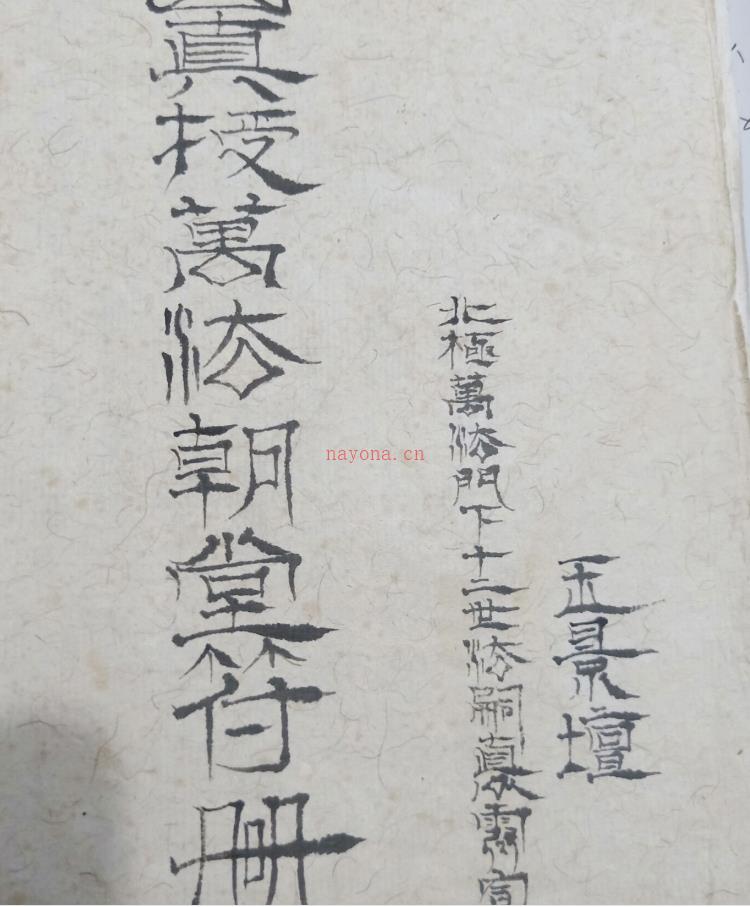 玉景壇
北極萬法門下十二世法嗣真
真授萬法朝堂符冊
nayona.cn